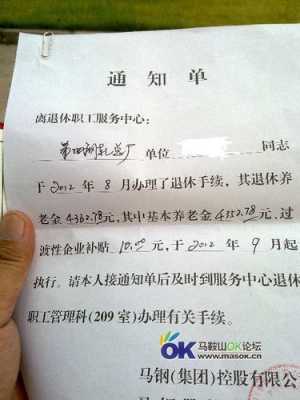 通知单
离退休职工服务中心：
第四钢轧总厂 单位 同志
于 2012 年 8 月办理了退休手续，其退休养
老金 4362.78 元，其中基本养老金 4352.78 元，过
渡性企业补贴 10.00 元，于 2012 年 9 月起
执行。请本人接通知单后及时到服务中心退休
职工管理科（209 室）办理有关手续。
OK 马鞍山OK论坛
www.masok.cn
马钢（集团）控股有限公